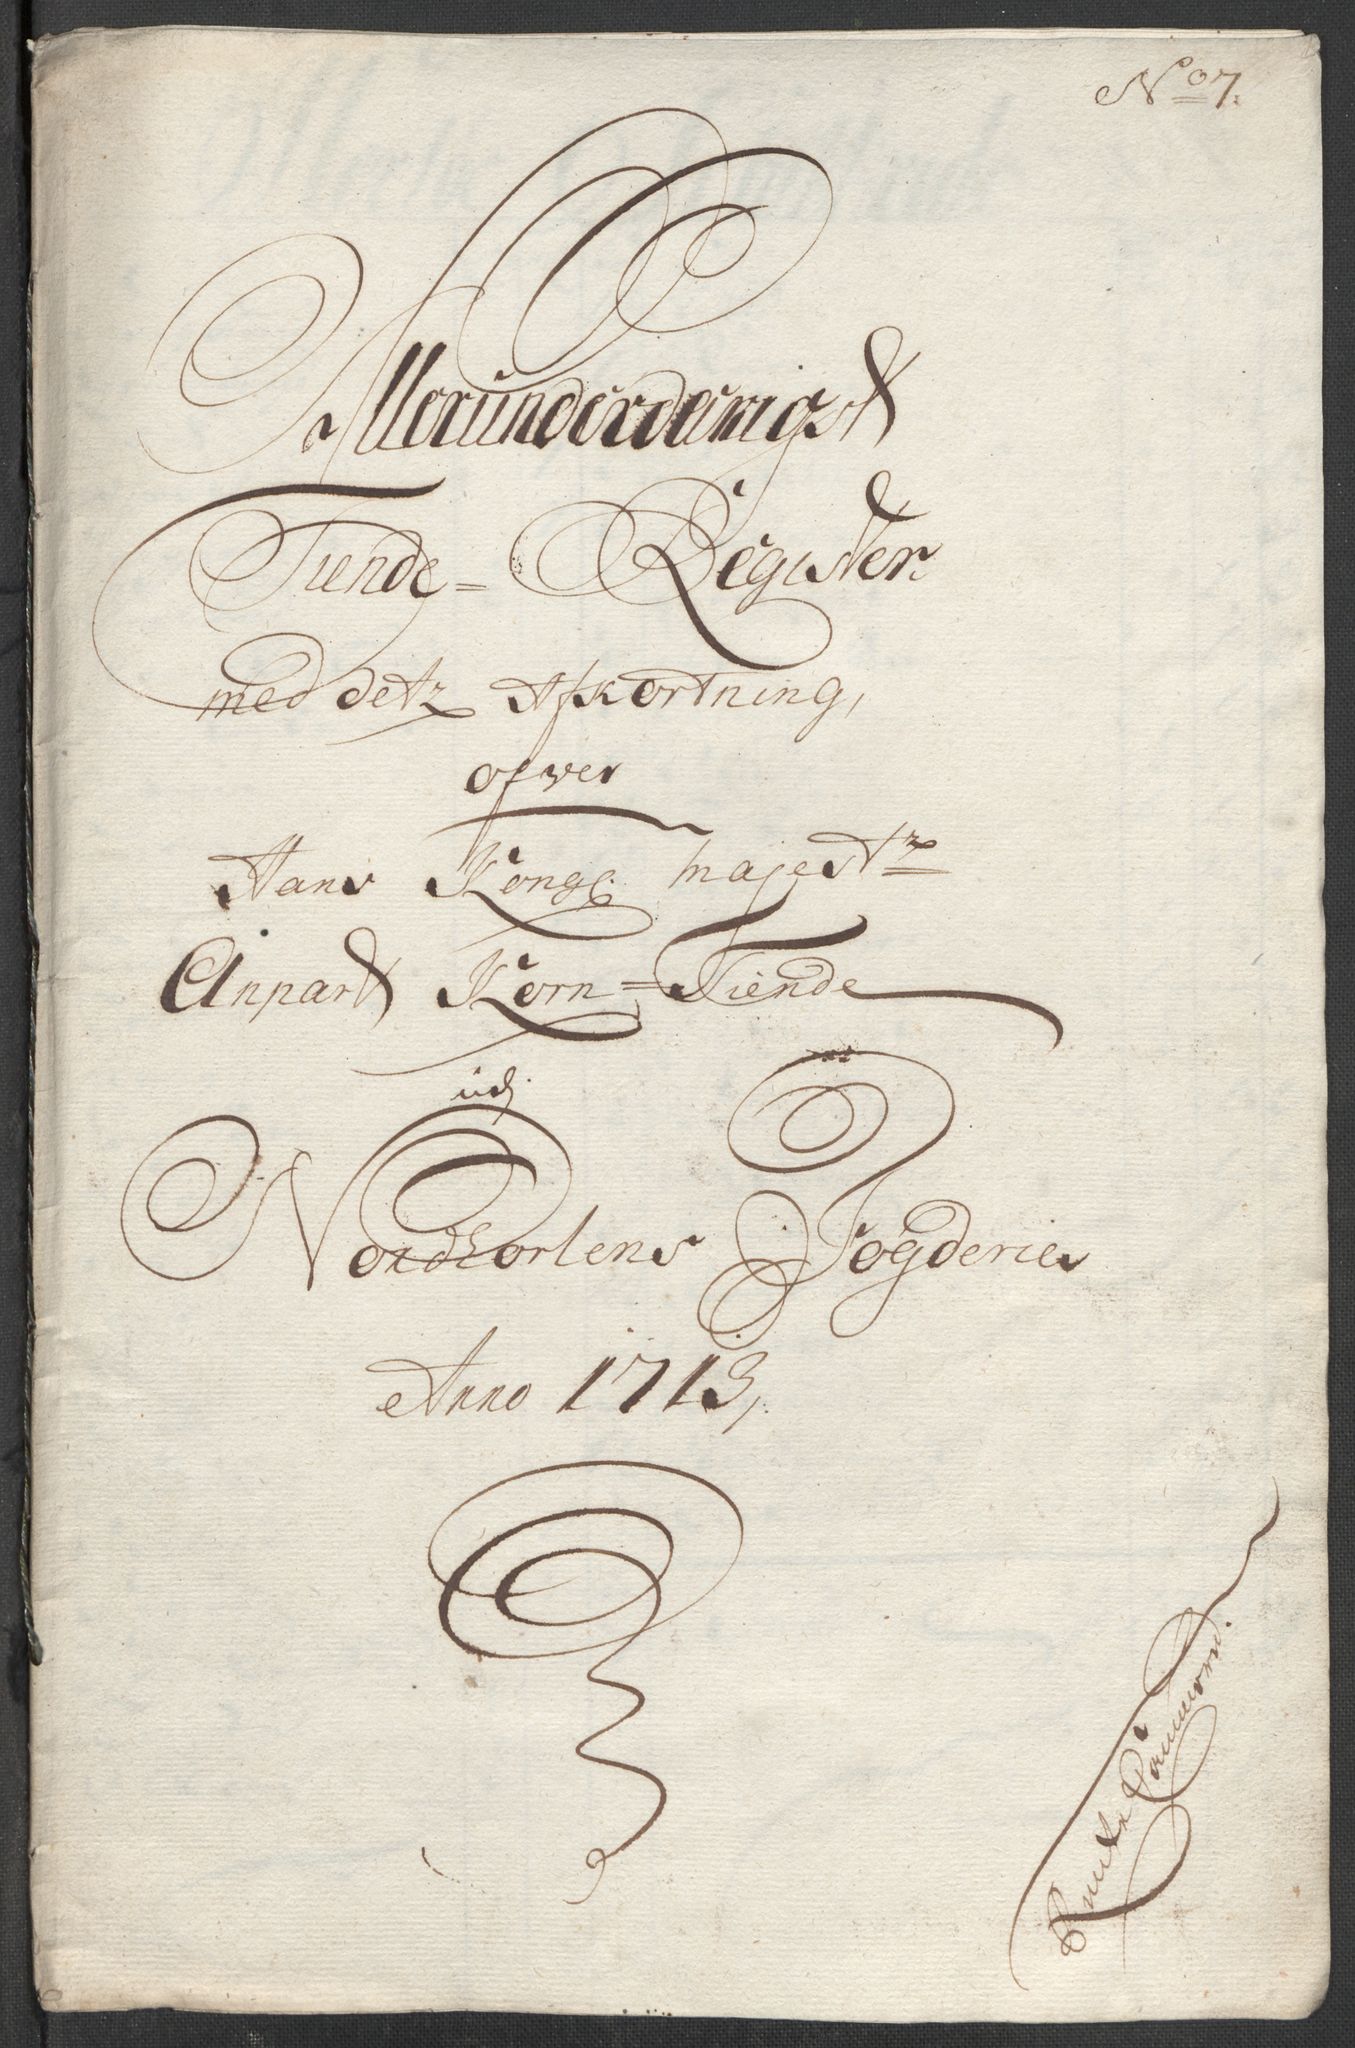 No 7.
Allerunderdanigst
Tiende=Register
med detz Afkortning,
ofver
Hans Kongl. Majestz
Anpart Korn=Tiende
udj
Nordhorlens Fogderie
Anno 1713,